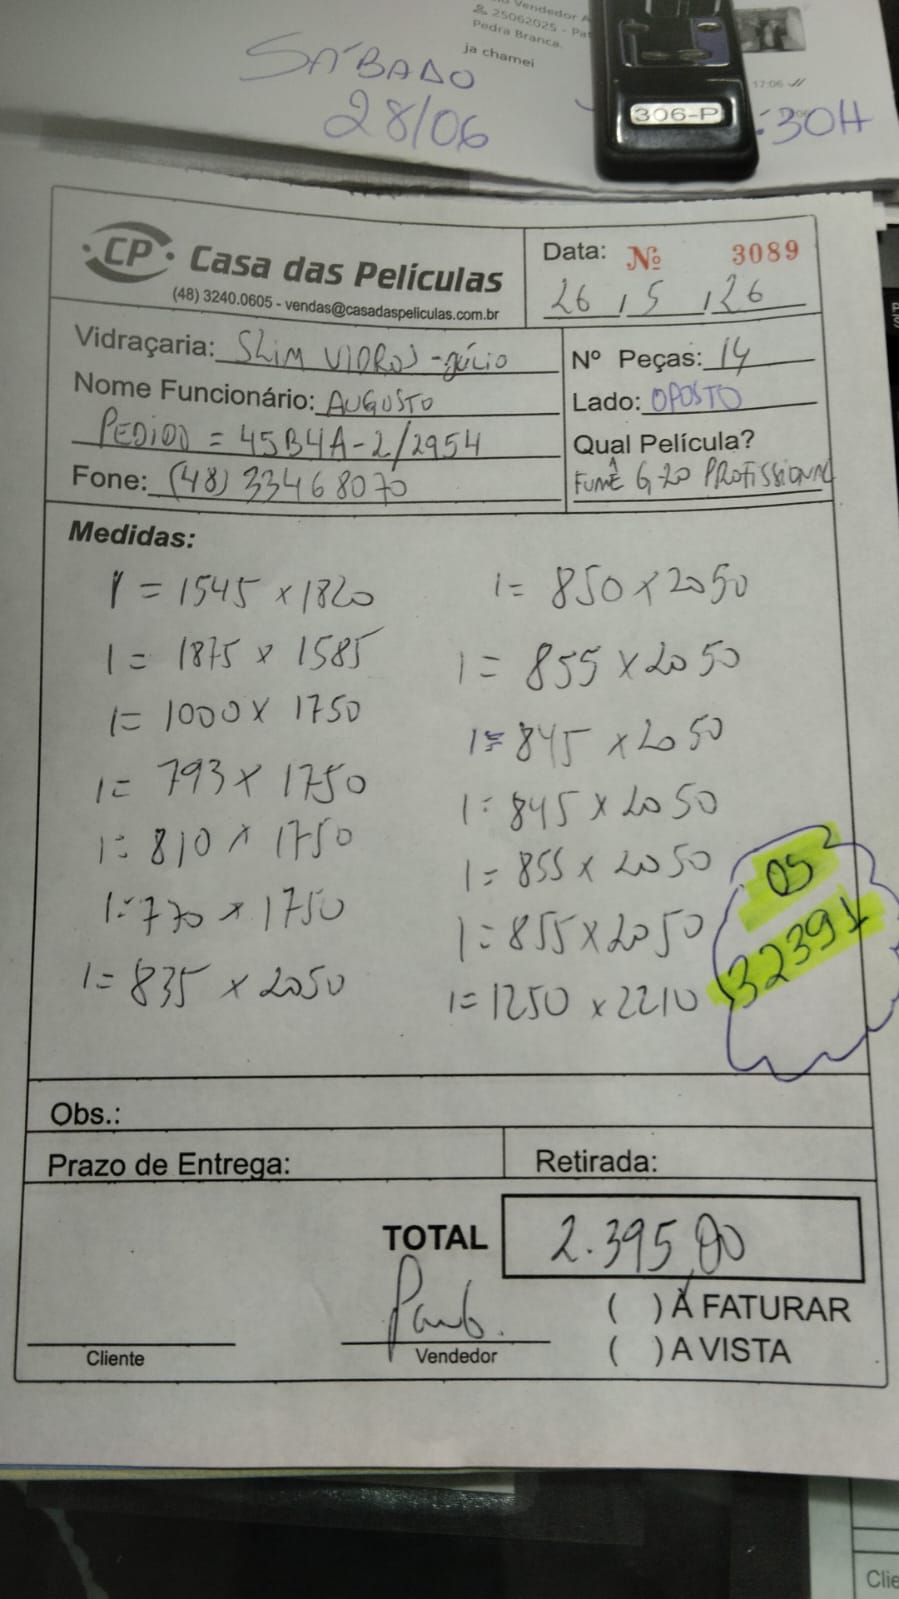 Vendedor A
25062025 - Pa
Pedra Branca.
ja chamei
17:06
SÁBADO
28/06
306-P
:30H
CP Casa das Películas
(48) 3240.0605 - vendas@casadaspeliculas.com.br
Data: Nº 3089
26 / 5 / 26
Vidraçaria: SLIM VIDROS - JÚLIO
Nº Peças: 14
Nome Funcionário: AUGUSTO
Lado: OPOSTO
PEDIDO = 45B4A-2/2954
Qual Película?
Fone: (48) 33468070
FUMÊ G-20 PROFISSIONAL
Medidas:
1 = 1545 x 1820
1 = 1875 x 1585
1 = 1000 x 1750
1 = 793 x 1750
1 = 810 x 1750
1 = 770 x 1750
1 = 835 x 2050
1 = 850 x 2050
1 = 855 x 2050
1 = 845 x 2050
1 = 845 x 2050
1 = 855 x 2050
1 = 855 x 2050
1 = 1250 x 2210
05
32391
Obs.:
Prazo de Entrega:
Retirada:
TOTAL 2.395,00
( ) A FATURAR
( ) A VISTA
Cliente
Vendedor
Clie